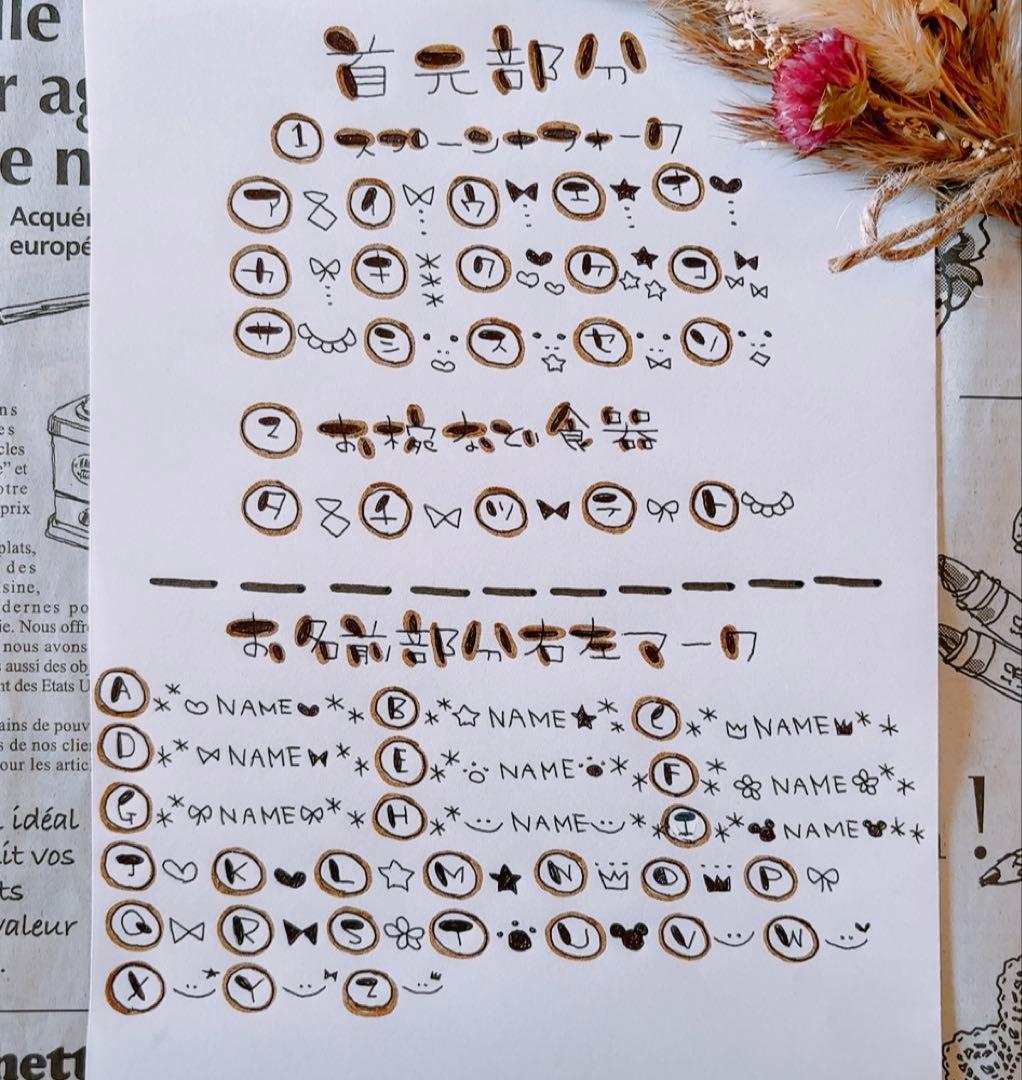 首元部分
① スプーンフォーク
ア イ ウ エ オ
カ キ ク ケ コ
サ シ ス セ ソ
② お椀おさら食器
タ チ ツ テ ト
お名前部分右左マーク
A **♡NAME♥** B **☆NAME★** C **NAME**
D **NAME** E **NAME** F **NAME**
G **NAME** H **NAME** I **NAME**
J ♡ K ♥ L ☆ M ★ N O P
Q R S T U V W
X Y Z
lle
r ag
e n
Acquér
europé
ns
es
cles
e" et
otre
prix
plats,
des
isine,
dernes po
ie. Nous offr
nous avons
aussi des ob
nt des Etats U
ains de pouv
s de nos clie
our les artic
idéal
it vos
ts
valeur
nett
!